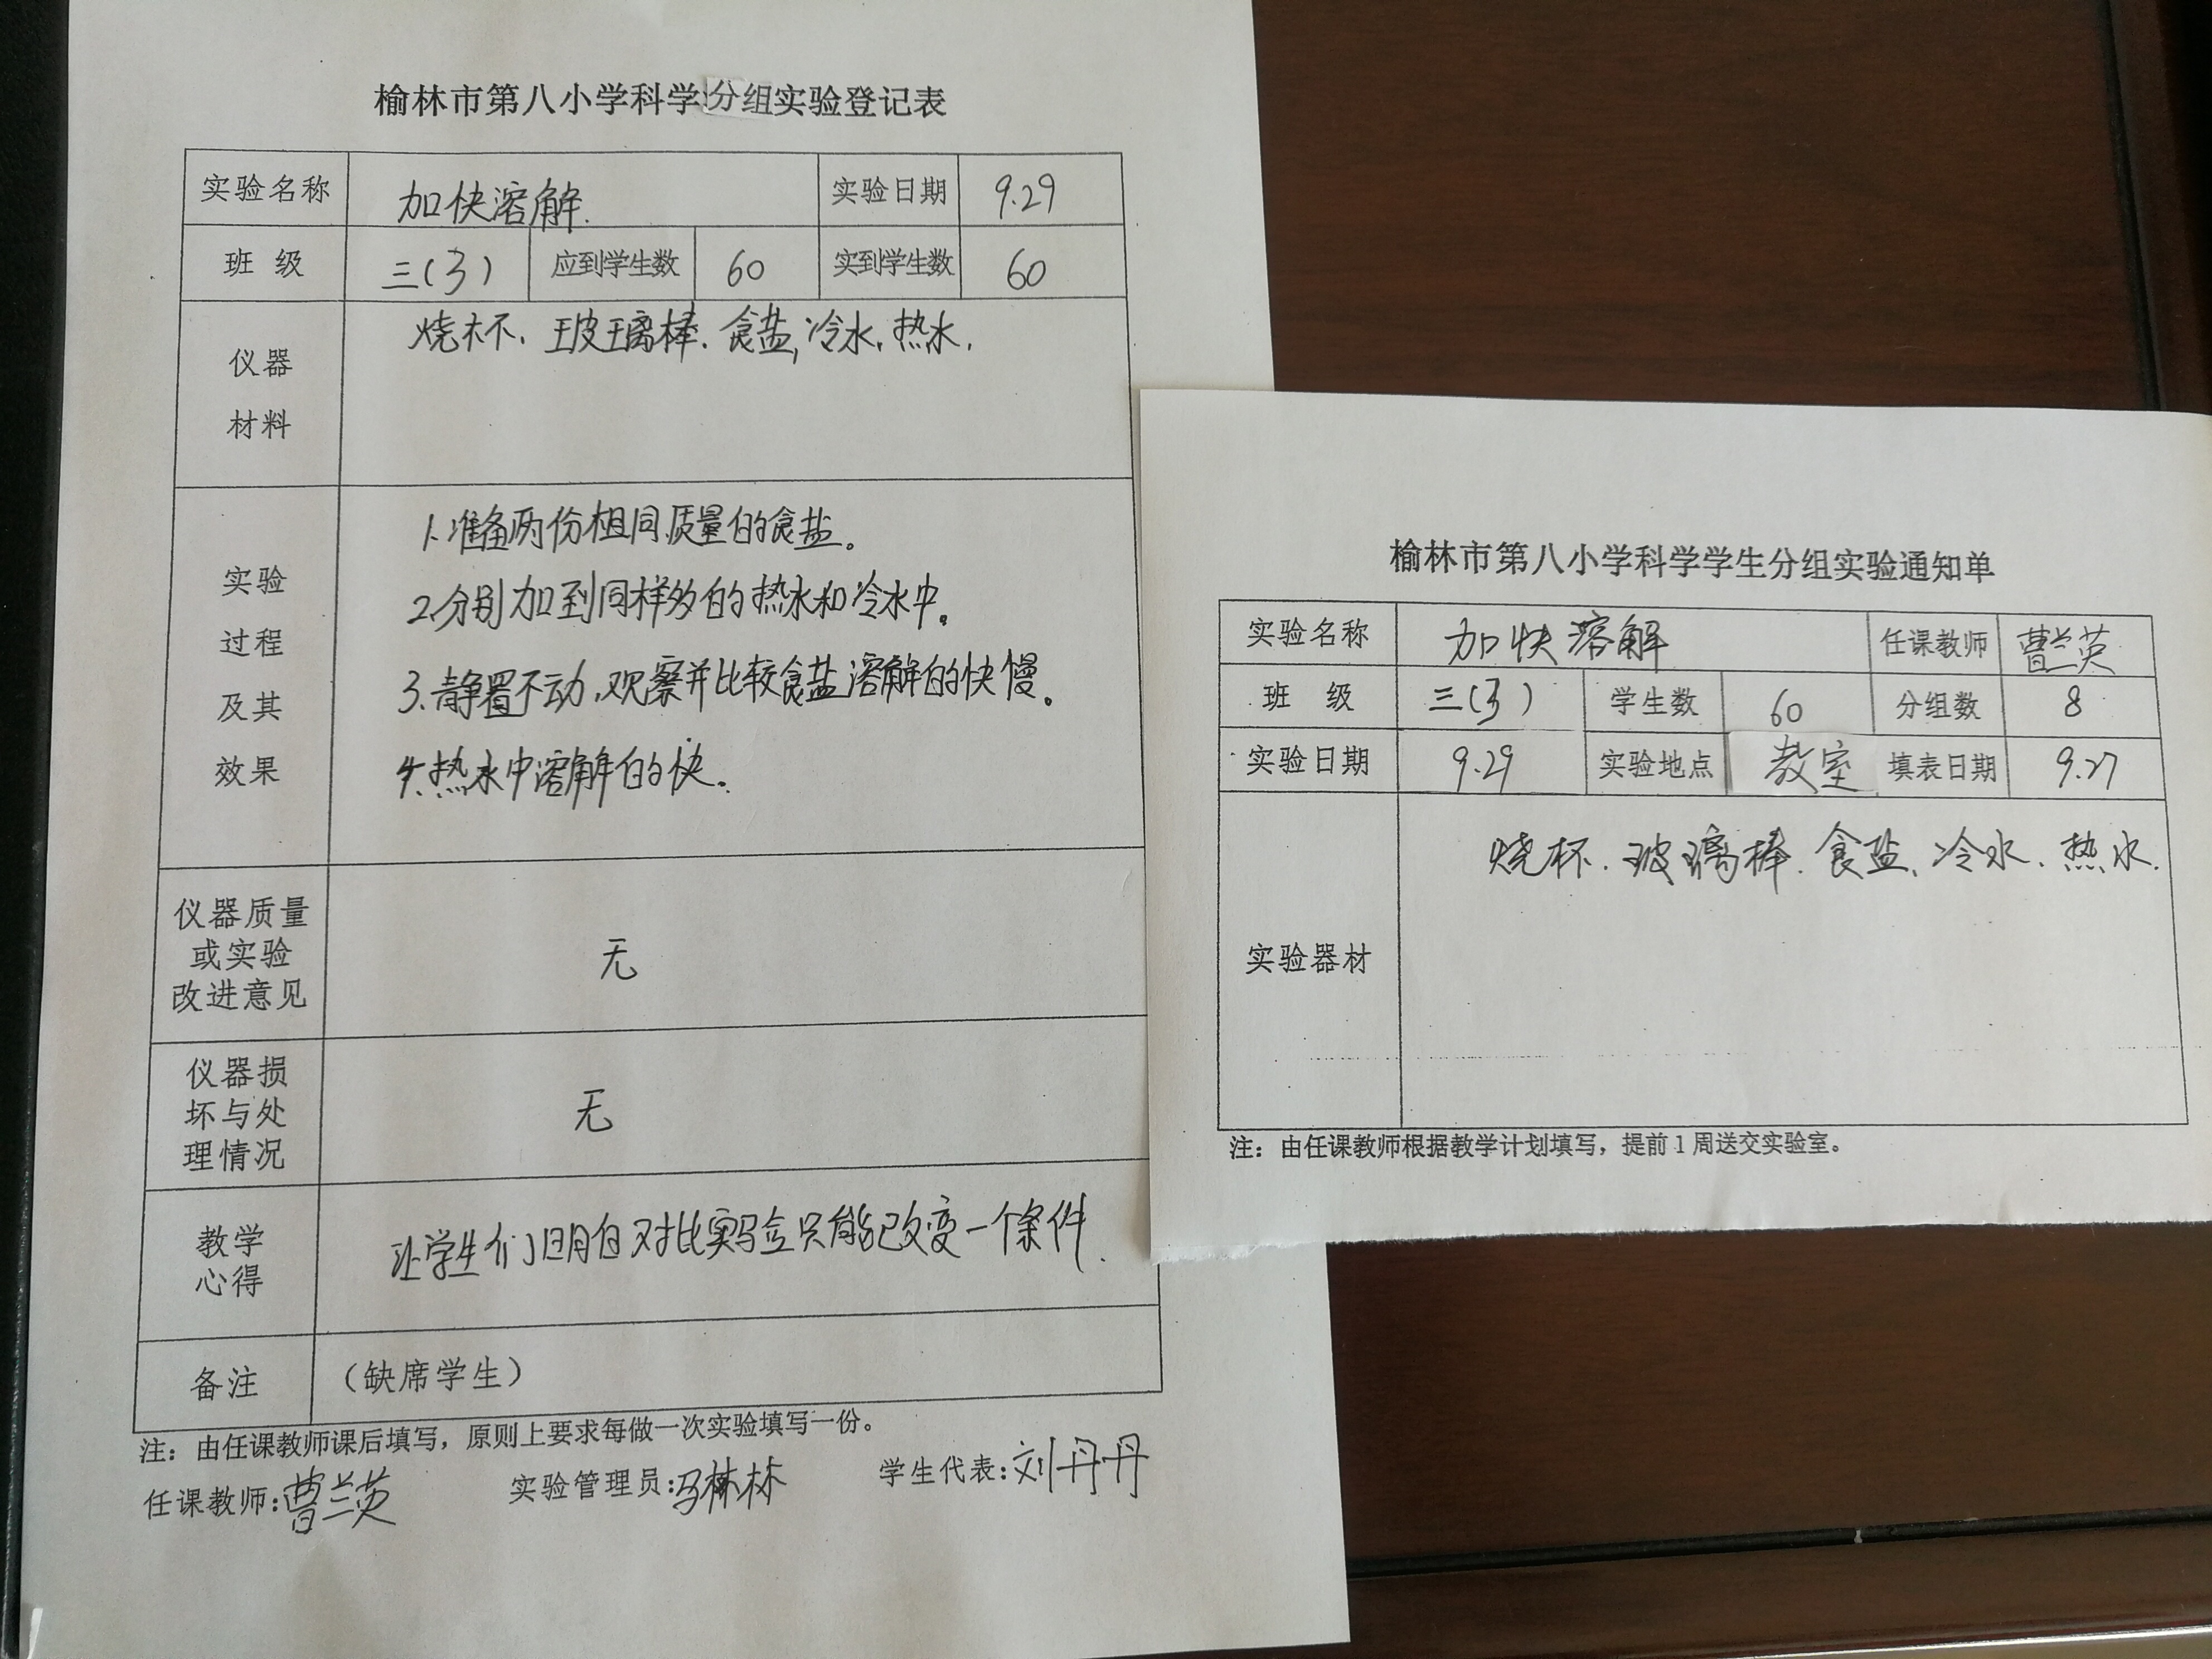 榆林市第八小学科学分组实验登记表
实验名称 加快溶解. 实验日期 9.29
班 级 三(3) 应到学生数 60 实到学生数 60
仪器
材料
烧杯、玻璃棒.食盐,冷水.热水.
实验
过程
及其
效果
1.准备两份相同质量的食盐。
2.分别加到同样多的热水和冷水中。
3.静置不动,观察并比较食盐溶解的快慢。
4.热水中溶解的快.
仪器质量
或实验
改进意见
无
仪器损
坏与处
理情况
无
教学
心得
让学生们明白对比实验只能改变一个条件.
备注 (缺席学生)
注：由任课教师课后填写，原则上要求每做一次实验填写一份。
任课教师:曹兰英 实验管理员:冯林林 学生代表:刘丹丹
榆林市第八小学科学学生分组实验通知单
实验名称 加快溶解 任课教师 曹兰英
班 级 三(3) 学生数 60 分组数 8
实验日期 9.29 实验地点 教室 填表日期 9.27
实验器材
烧杯.玻璃棒.食盐、冷水、热水.
注：由任课教师根据教学计划填写，提前1周送交实验室。